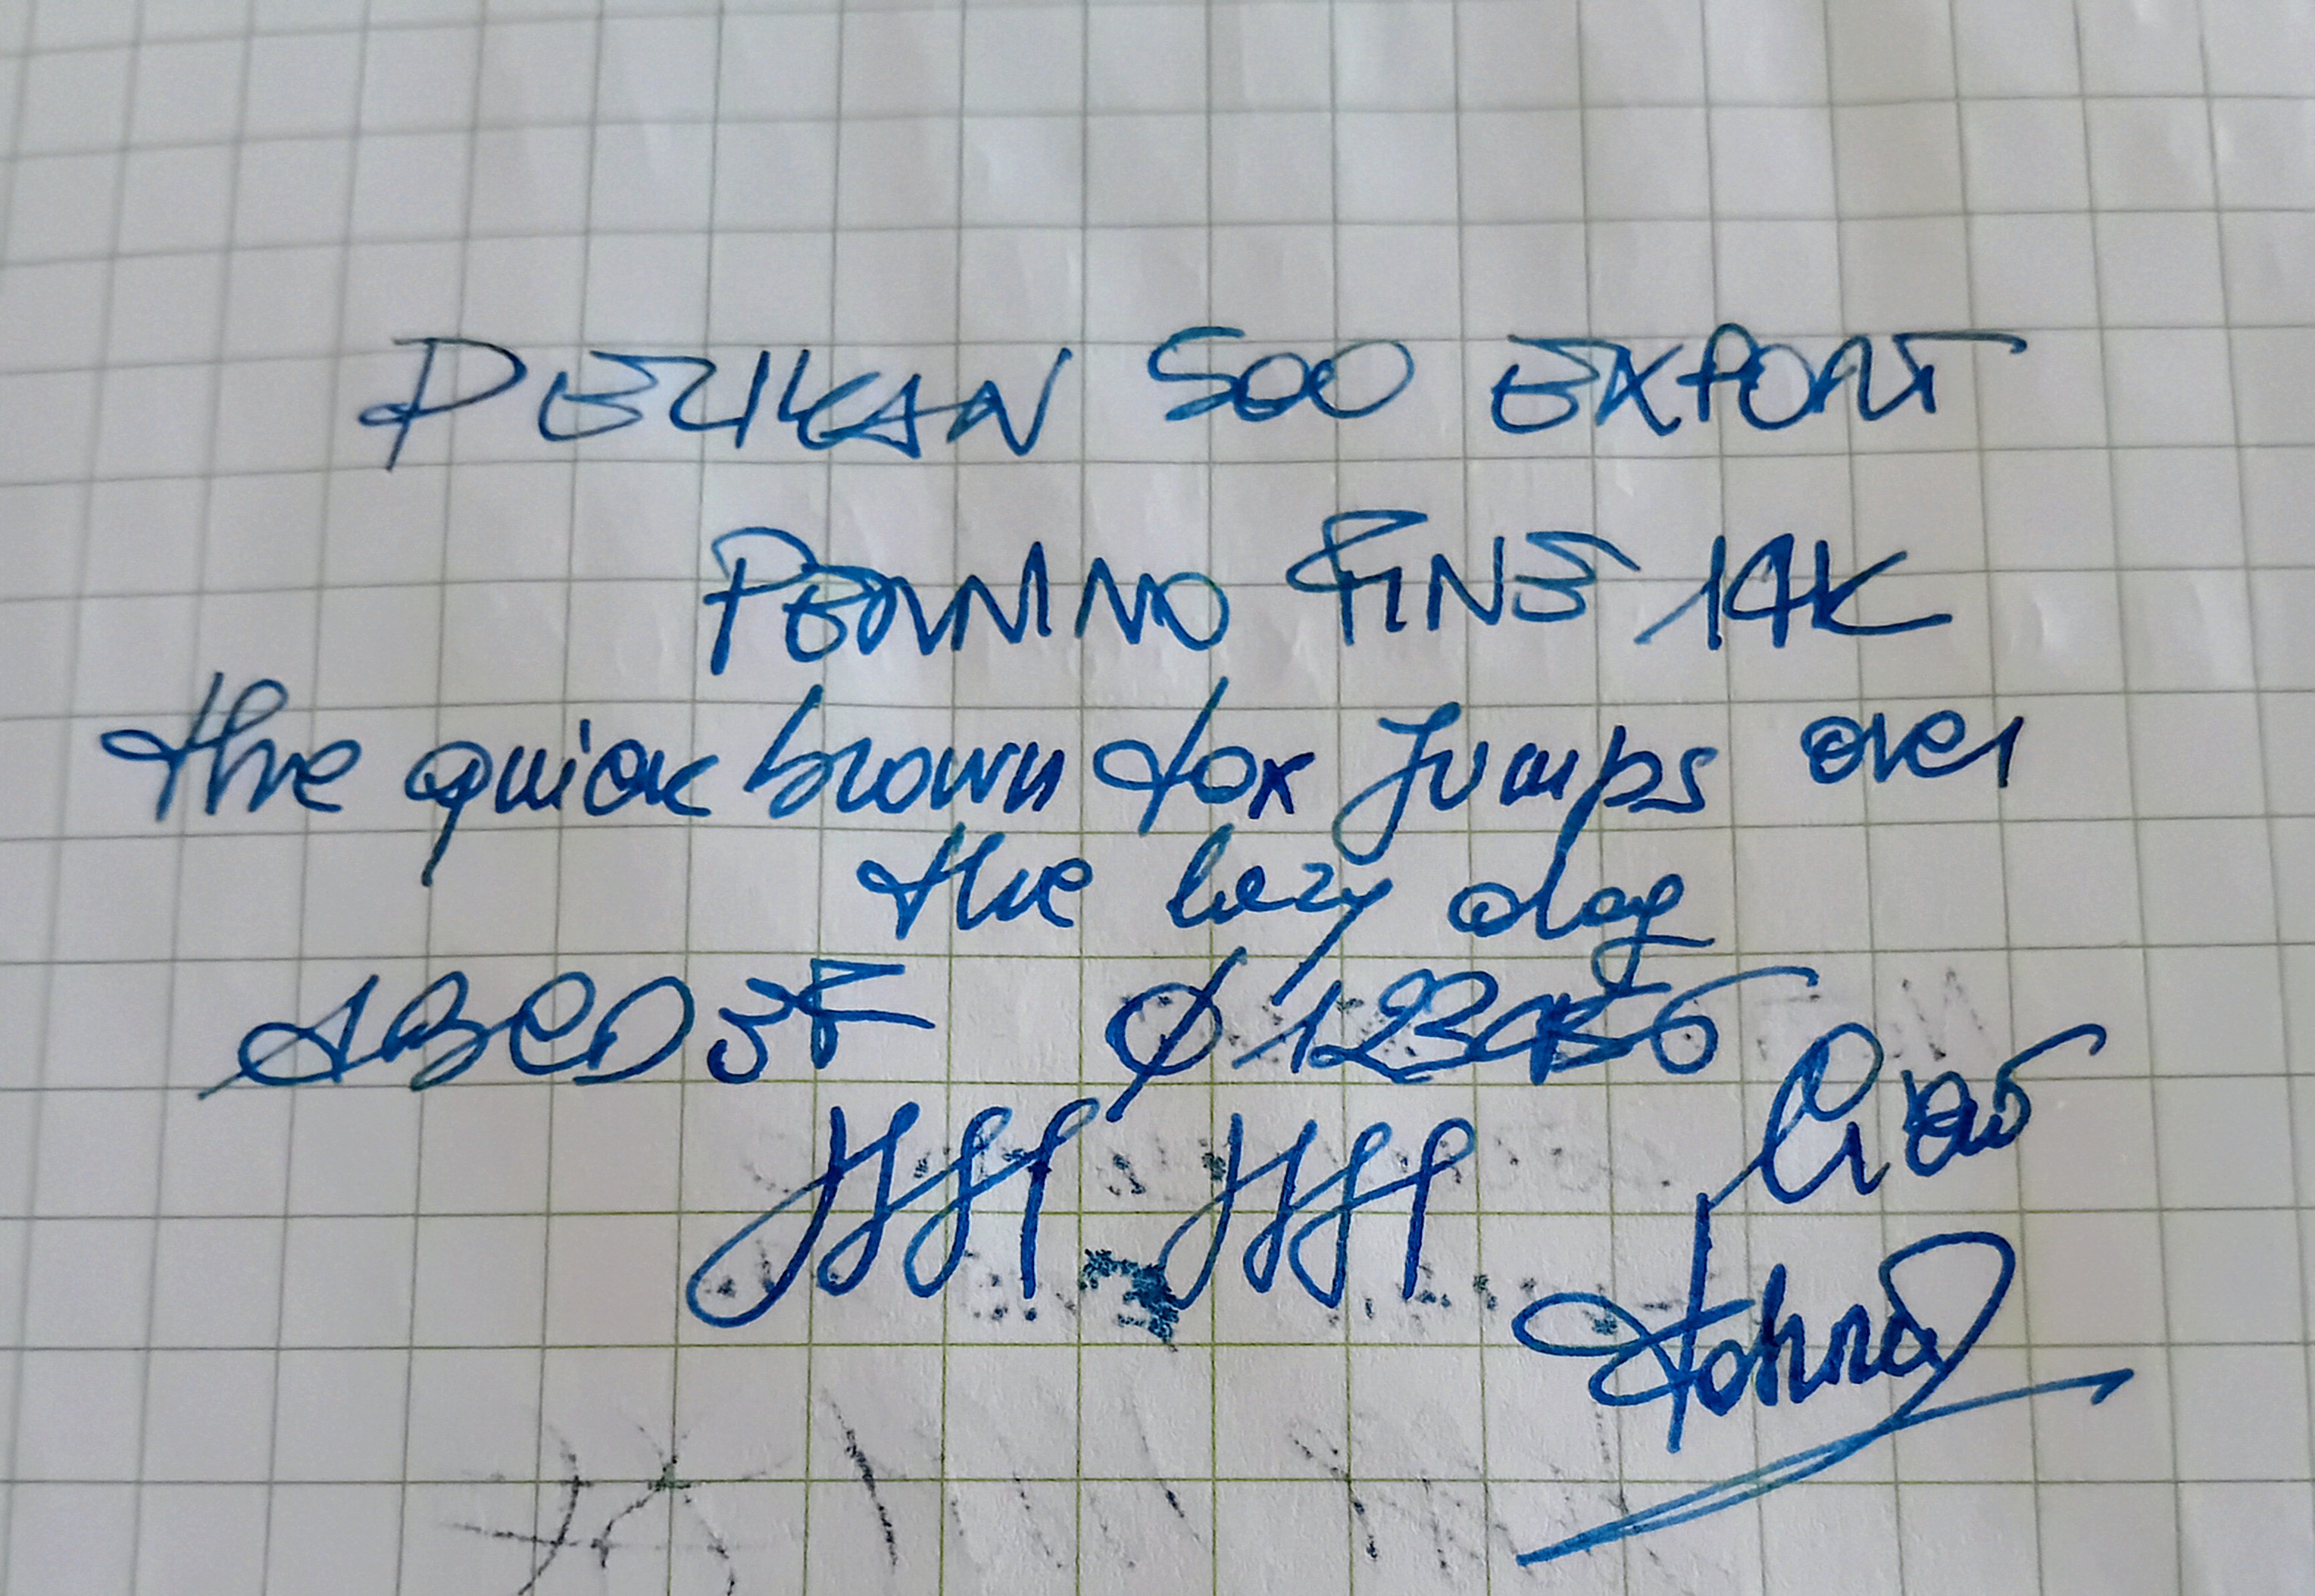 PELIKAN 500 EXPORT
PENNINO FINE 14K
the quick brown fox jumps over
the lazy dog
ABCDEF Ø123456
Ciao